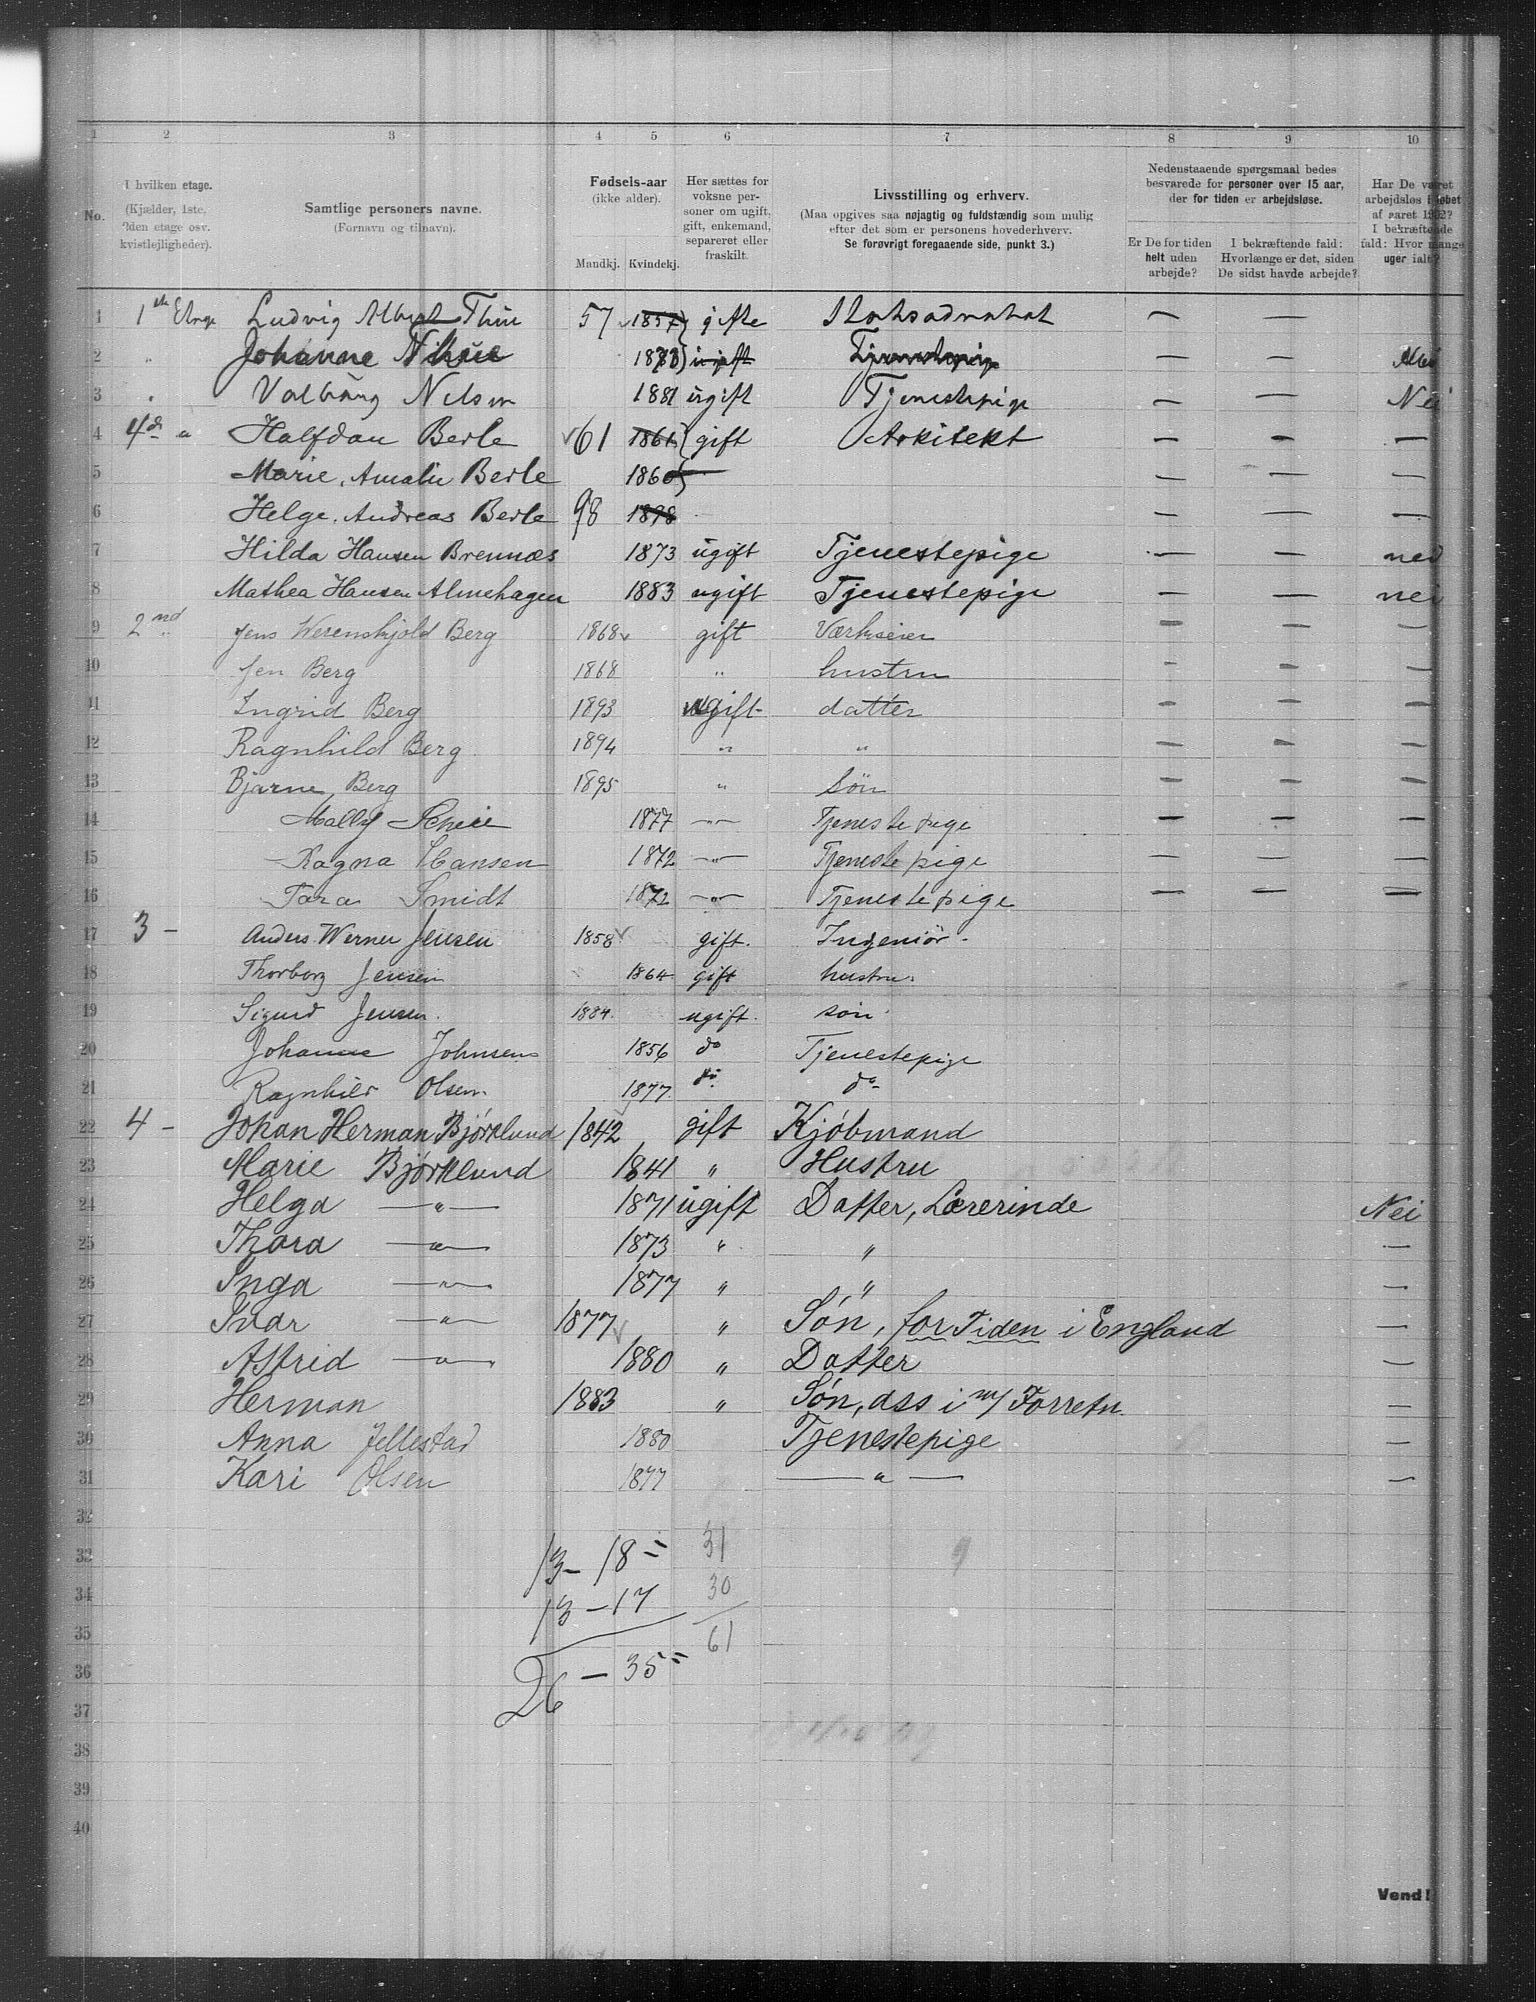 1 2 3 4 5 6 7 8 9 10
No.
I hvilken etage.
(Kjælder, 1ste, 2den etage osv. kvistlejligheder).
Samtlige personers navne.
(Fornavn og tilnavn).
Fødsels-aar
(ikke alder).
Mandkj. Kvindekj.
Her sættes for voksne personer om ugift, gift, enkemand, separeret eller fraskilt.
Livsstilling og erhverv.
(Maa opgives saa nøjagtig og fuldstændig som mulig efter det som er personens hovederhverv.
Se forøvrigt foregaaende side, punkt 3.)
Nedenstaaende spørgsmaal bedes besvarede for personer over 15 aar, der for tiden er arbejdsløse.
Er De for tiden helt uden arbejde?
I bekræftende fald: Hvorlænge er det, siden De sidst havde arbejde?
Har De været arbejdsløs i løbet af aaret 1902? I bekræftende fald: Hvor mange uger ialt?
1 1ste Etage Ludvig Albert Thue 57 1857 gifte — —
2 " Johanne Thue 1873 ugift Tjenestepige — — Nei
3 " Valborg Nilsen 1881 ugift Tjenestepige — — Nei
4 4de " Halfdan Berle 61 1861 gift Arkitekt — — —
5 Marie. Amalie Berle 1860 — — —
6 Helge. Andreas Berle 98 1898 — — —
7 Hilda Hansen Brennæs 1873 ugift Tjenestepige — — nei
8 Mathea Hansen Almehagen 1883 ugift Tjenestepige — — nei
9 2nd " Jens Werenskjold Berg 1868 gift Værkseier — — —
10 Jen Berg 1868 " hustru — — —
11 Ingrid Berg 1893 ugift datter — — —
12 Ragnhild Berg 1894 " " — — —
13 Bjarne Berg 1895 " søn — — —
14 Mally Scheie 1877 —"— Tjenestepige — — —
15 Ragna Hansen 1872 —"— Tjenestepige — — —
16 Tara Smidt 1872 —"— Tjenestepige — — —
17 3 — Anders Werner Jensen 1858 gift. Ingeniør.
18 Thorborg Jensen 1864 gift hustru.
19 Sigurd Jensen. 1884. ugift. søn.
20 Johanne Johnsen 1856 do Tjenestepige
21 Ragnhild Olsen. 1877. do. do
22 4 — Johan Herman Bjørklund 1842 gift Kjøbmand
23 Marie Bjørklund 1841 " Hustru
24 Helga —"— 1871 ugift Datter, Lærerinde Nei
25 Thora —"— 1873 " " —
26 Inga —"— 1877 " " —
27 Ivar —"— 1877 " Søn, for Tiden i England —
28 Astrid —"— 1880 " Datter —
29 Herman 1883 " Søn, ass i m/ Forretn. —
30 Anna Jellestad 1880 Tjenestepige —
31 Kari Olsen 1877 —"— —
32
33 13 — 18 = 31 9
34 13 — 17 30
35 61
36 26 — 35 =
37
38
39
40
Vend!